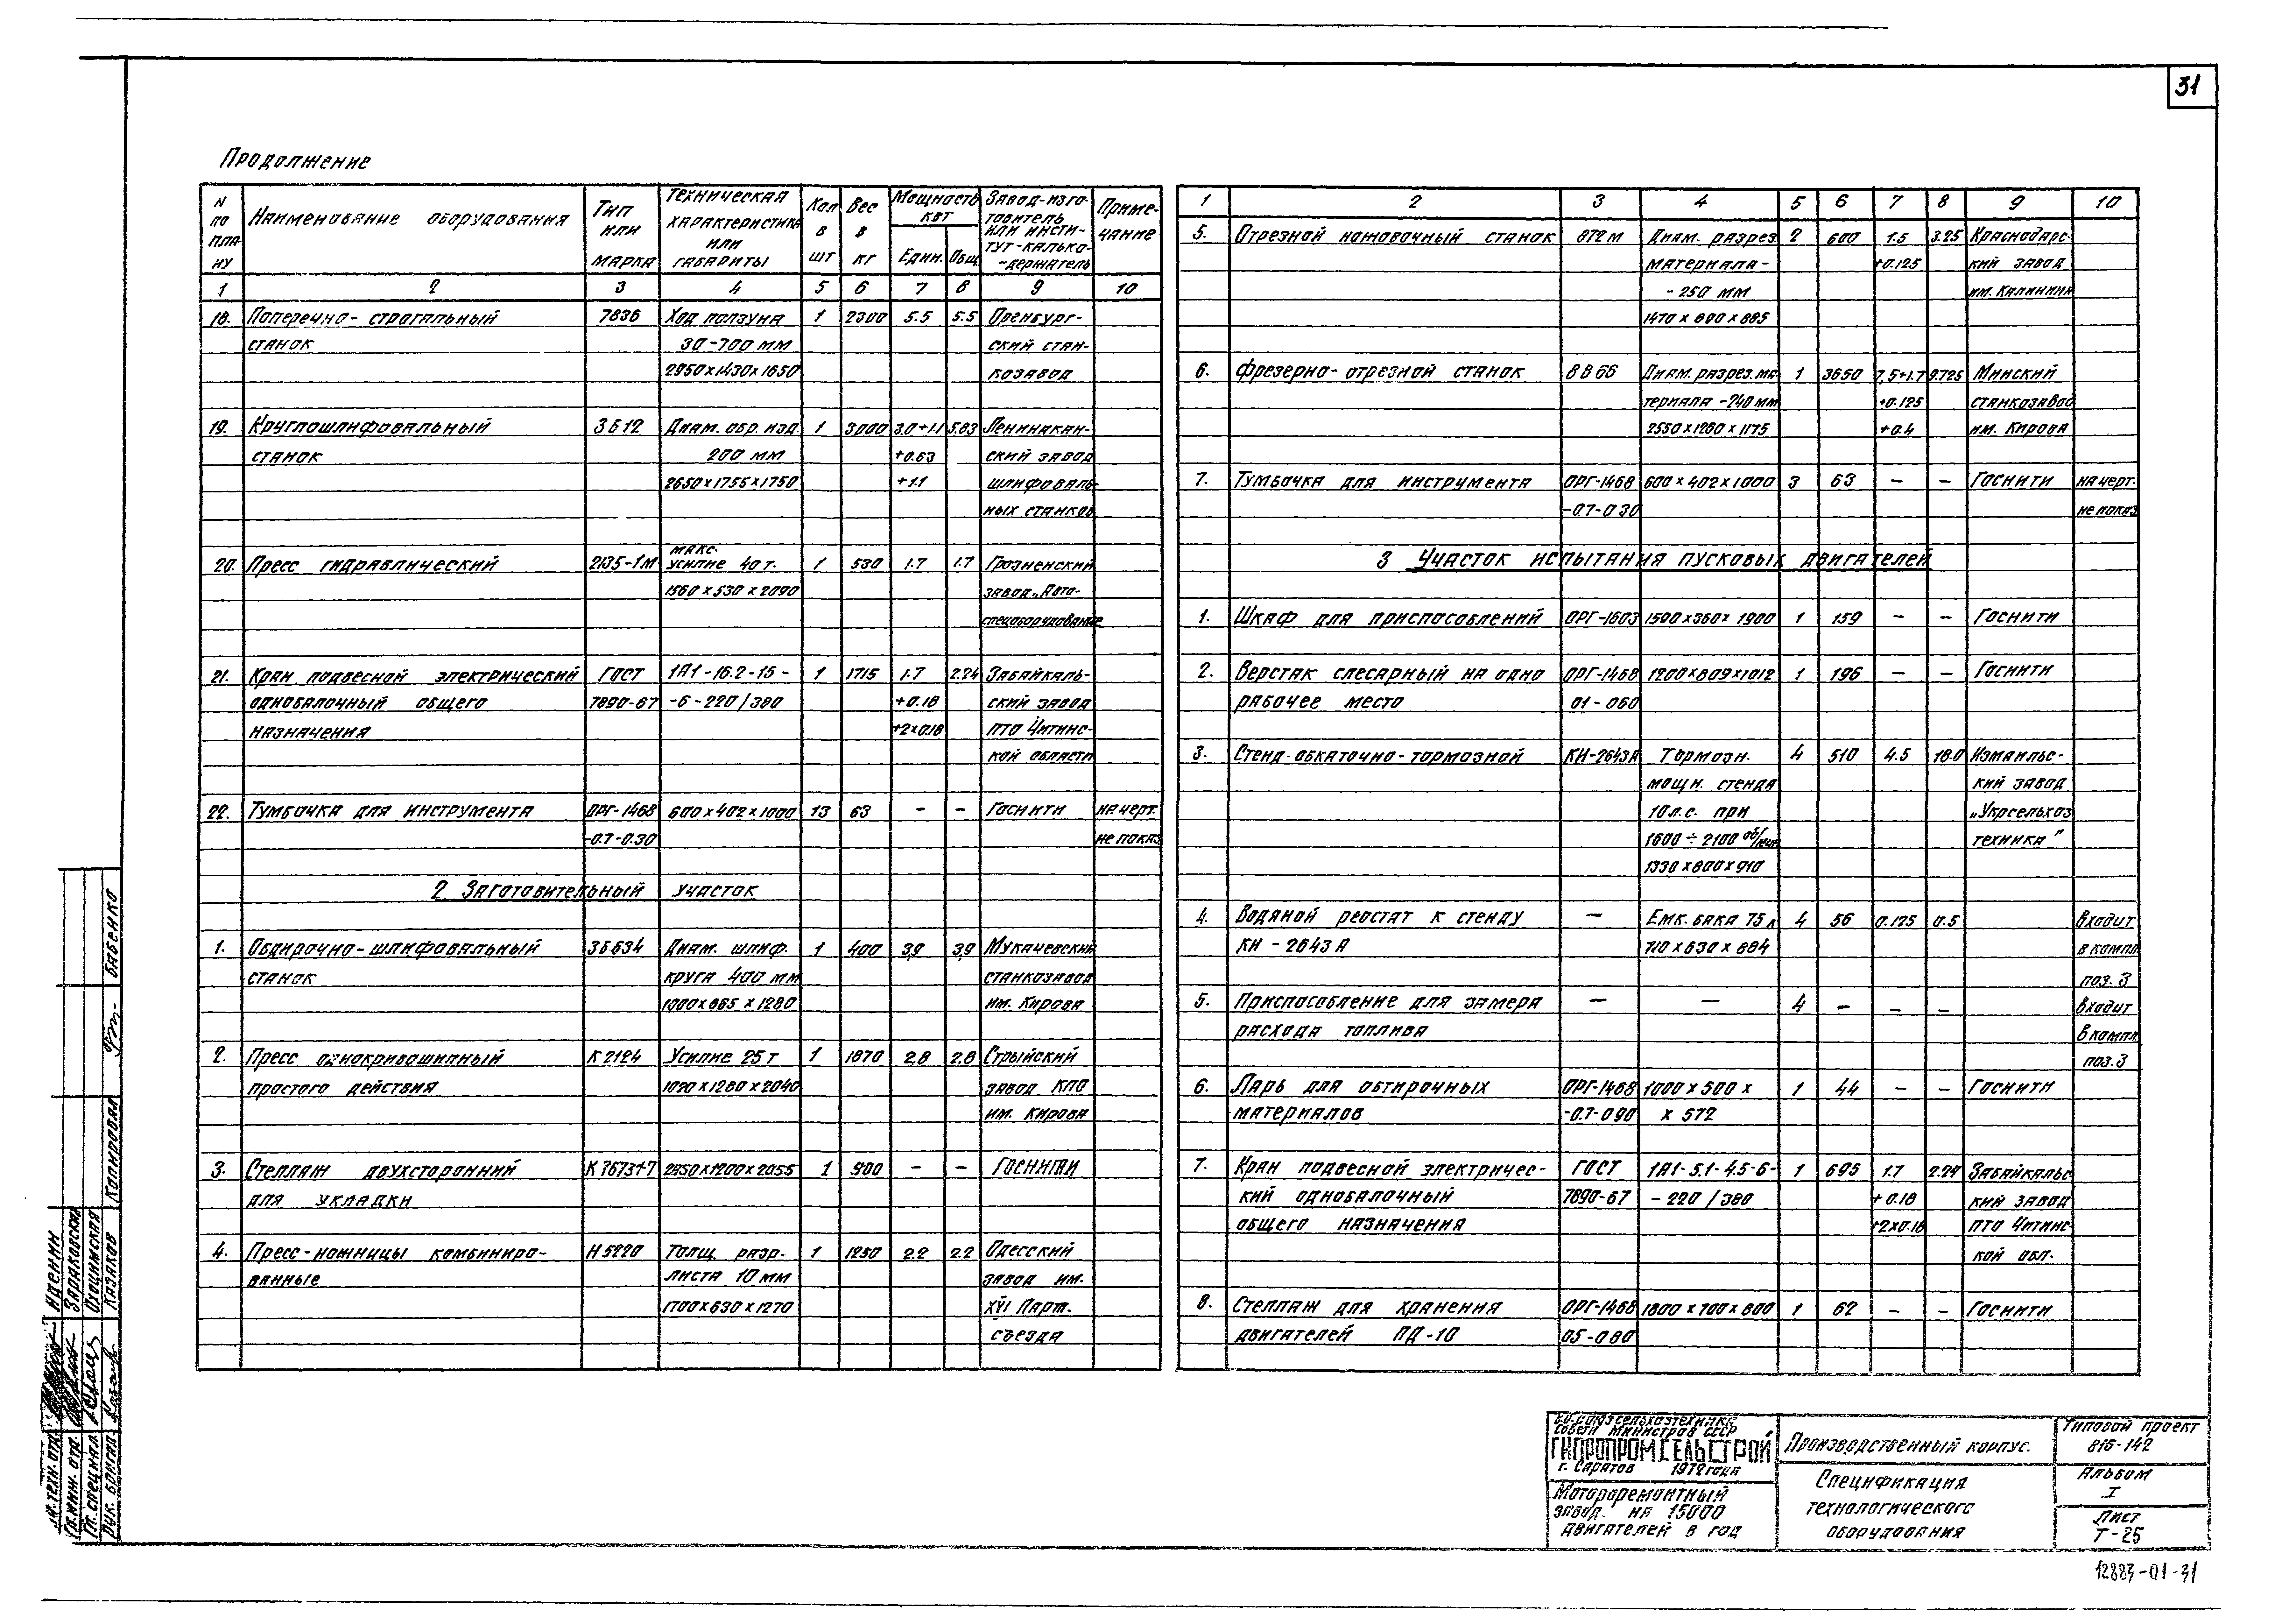 31
Продолжение
N по плану | Наименование оборудования | Тип или марка | Техническая характеристика или габариты | Кол в шт | Вес в кг | Мощность квт Един. Общ. | Завод-изготовитель или институт-калькодержатель | Примечание
1 2 3 4 5 6 7 8 9 10
18. Поперечно-строгальный 7836 Ход ползуна 1 2300 5.5 5.5 Оренбург-
станок 30-700 мм ский стан-
2950×1430×1650 козавод
19. Круглошлифовальный 3Б12 Диам. обр. изд. 1 3000 3.0+1.1 5.83 Ленинакан-
станок 200 мм +0.63 ский завод
2650×1755×1750 +1.1 шлифоваль-
ных станков
20. Пресс гидравлический 2135-1М макс. усилие 40 т. 1 530 1.7 1.7 Грозненский
1560×530×2090 завод „Авто-
спецоборудование
21. Кран подвесной электрический ГОСТ 1А1-16.2-15- 1 1715 1.7 2.24 Забайкаль-
однобалочный общего 7890-67 -6-220/380 +0.18 ский завод
назначения +2×0.18 ПТО Читинс-
кой области
22. Тумбочка для инструмента ОРГ-1468 600×402×1000 13 63 – – Госнити на черт.
-07-030 не показ.
2. Заготовительный участок
1. Обдирочно-шлифовальный 3Б634 Диам. шлиф. 1 400 3,9 3,9 Мукачевский
станок круга 400 мм станкозавод
1000×665×1280 им. Кирова
2. Пресс однокривошипный К2124 Усилие 25 т 1 1870 2.8 2.8 Стрыйский
простого действия 1090×1280×2040 завод КПО
им. Кирова
3. Стеллаж двухсторонний К 7673+7 2850×1200×2055 1 900 – – Госнити
для укладки
4. Пресс-ножницы комбиниро- Н5220 Толщ. разр. 1 1250 2.2 2.2 Одесский
ванные листа 10 мм завод им.
1700×630×1270 XVI Парт.
съезда
1 2 3 4 5 6 7 8 9 10
5. Отрезной ножовочный станок 872м Диам. разрез. 2 600 1.5 3.25 Краснодарс-
материала- +0.125 кий завод
-250 мм им. Калинина
1470×890×885
6. Фрезерно-отрезной станок 8В66 Диам. разрез. ма- 1 3650 7.5+1.7 9.725 Минский
териала -240 мм +0.125 станкозавод
2550×1260×1175 +0.4 им. Кирова
7. Тумбочка для инструмента ОРГ-1468 600×402×1000 3 63 – – Госнити на черт.
-07-030 не показ.
3 Участок испытания пусковых двигателей
1. Шкаф для приспособлений ОРГ-1603 1500×360×1900 1 159 – – Госнити
2. Верстак слесарный на одно ОРГ-1468 1200×809×1012 1 196 – – Госнити
рабочее место 01-060
3. Стенд-обкаточно-тормозной КИ-2643А Тормозн. 4 510 4.5 18.0 Измаильс-
мощн. стенда кий завод
10 л.с. при „Укрсельхоз
1600÷2100 об/мин техника"
1330×800×910
4. Водяной реостат к стенду – Емк. бака 75 л 4 56 0.125 0.5 входит
КИ-2643А 710×630×884 в компл.
поз. 3
5. Приспособление для замера – – 4 – – – входит
расхода топлива в компл.
поз. 3
6. Ларь для обтирочных ОРГ-1468 1000×500× 1 44 – – Госнити
материалов -07-090 ×572
7. Кран подвесной электричес- ГОСТ 1А1-5.1-4.5-6- 1 695 1.7 2.24 Забайкальс-
кий однобалочный 7890-67 -220/380 +0.18 кий завод
общего назначения +2×0.18 ПТО Читинс-
кой обл.
8. Стеллаж для хранения ОРГ-1468 1800×700×800 1 62 – – Госнити
двигателей ПД-10 05-080
В/О "Союзсельхозтехника
Совета Министров СССР
ГИПРОПРОМСЕЛЬСТРОЙ
г. Саратов 1972 года
Мотороремонтный
завод. на 15000
двигателей в год
Производственный корпус.
Спецификация
технологического
оборудования
Типовой проект
816-142
Альбом
I
Лист
Т-25
12883-01-31
Гл. инж. отд. Запаковская
Гл. специал. Охоцимская
Рук. бригад. Казаков
Копировал Бабенко